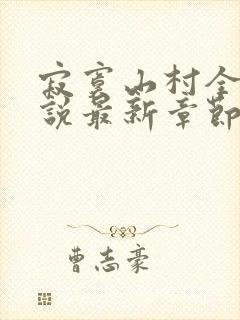 寂寞山村全
說最新章節
曹志豪